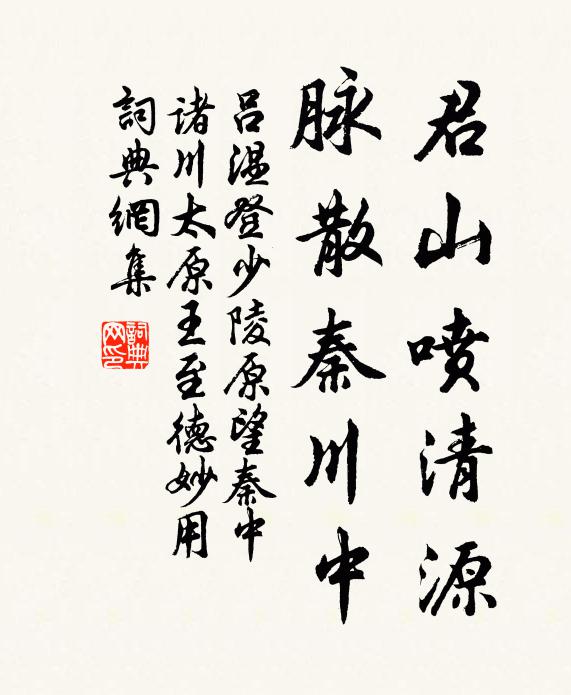 君山噴清源
脉散秦川中
吕温登少陵原望秦中
诸川太原王至德妙用
詞典網集
詞典
网印